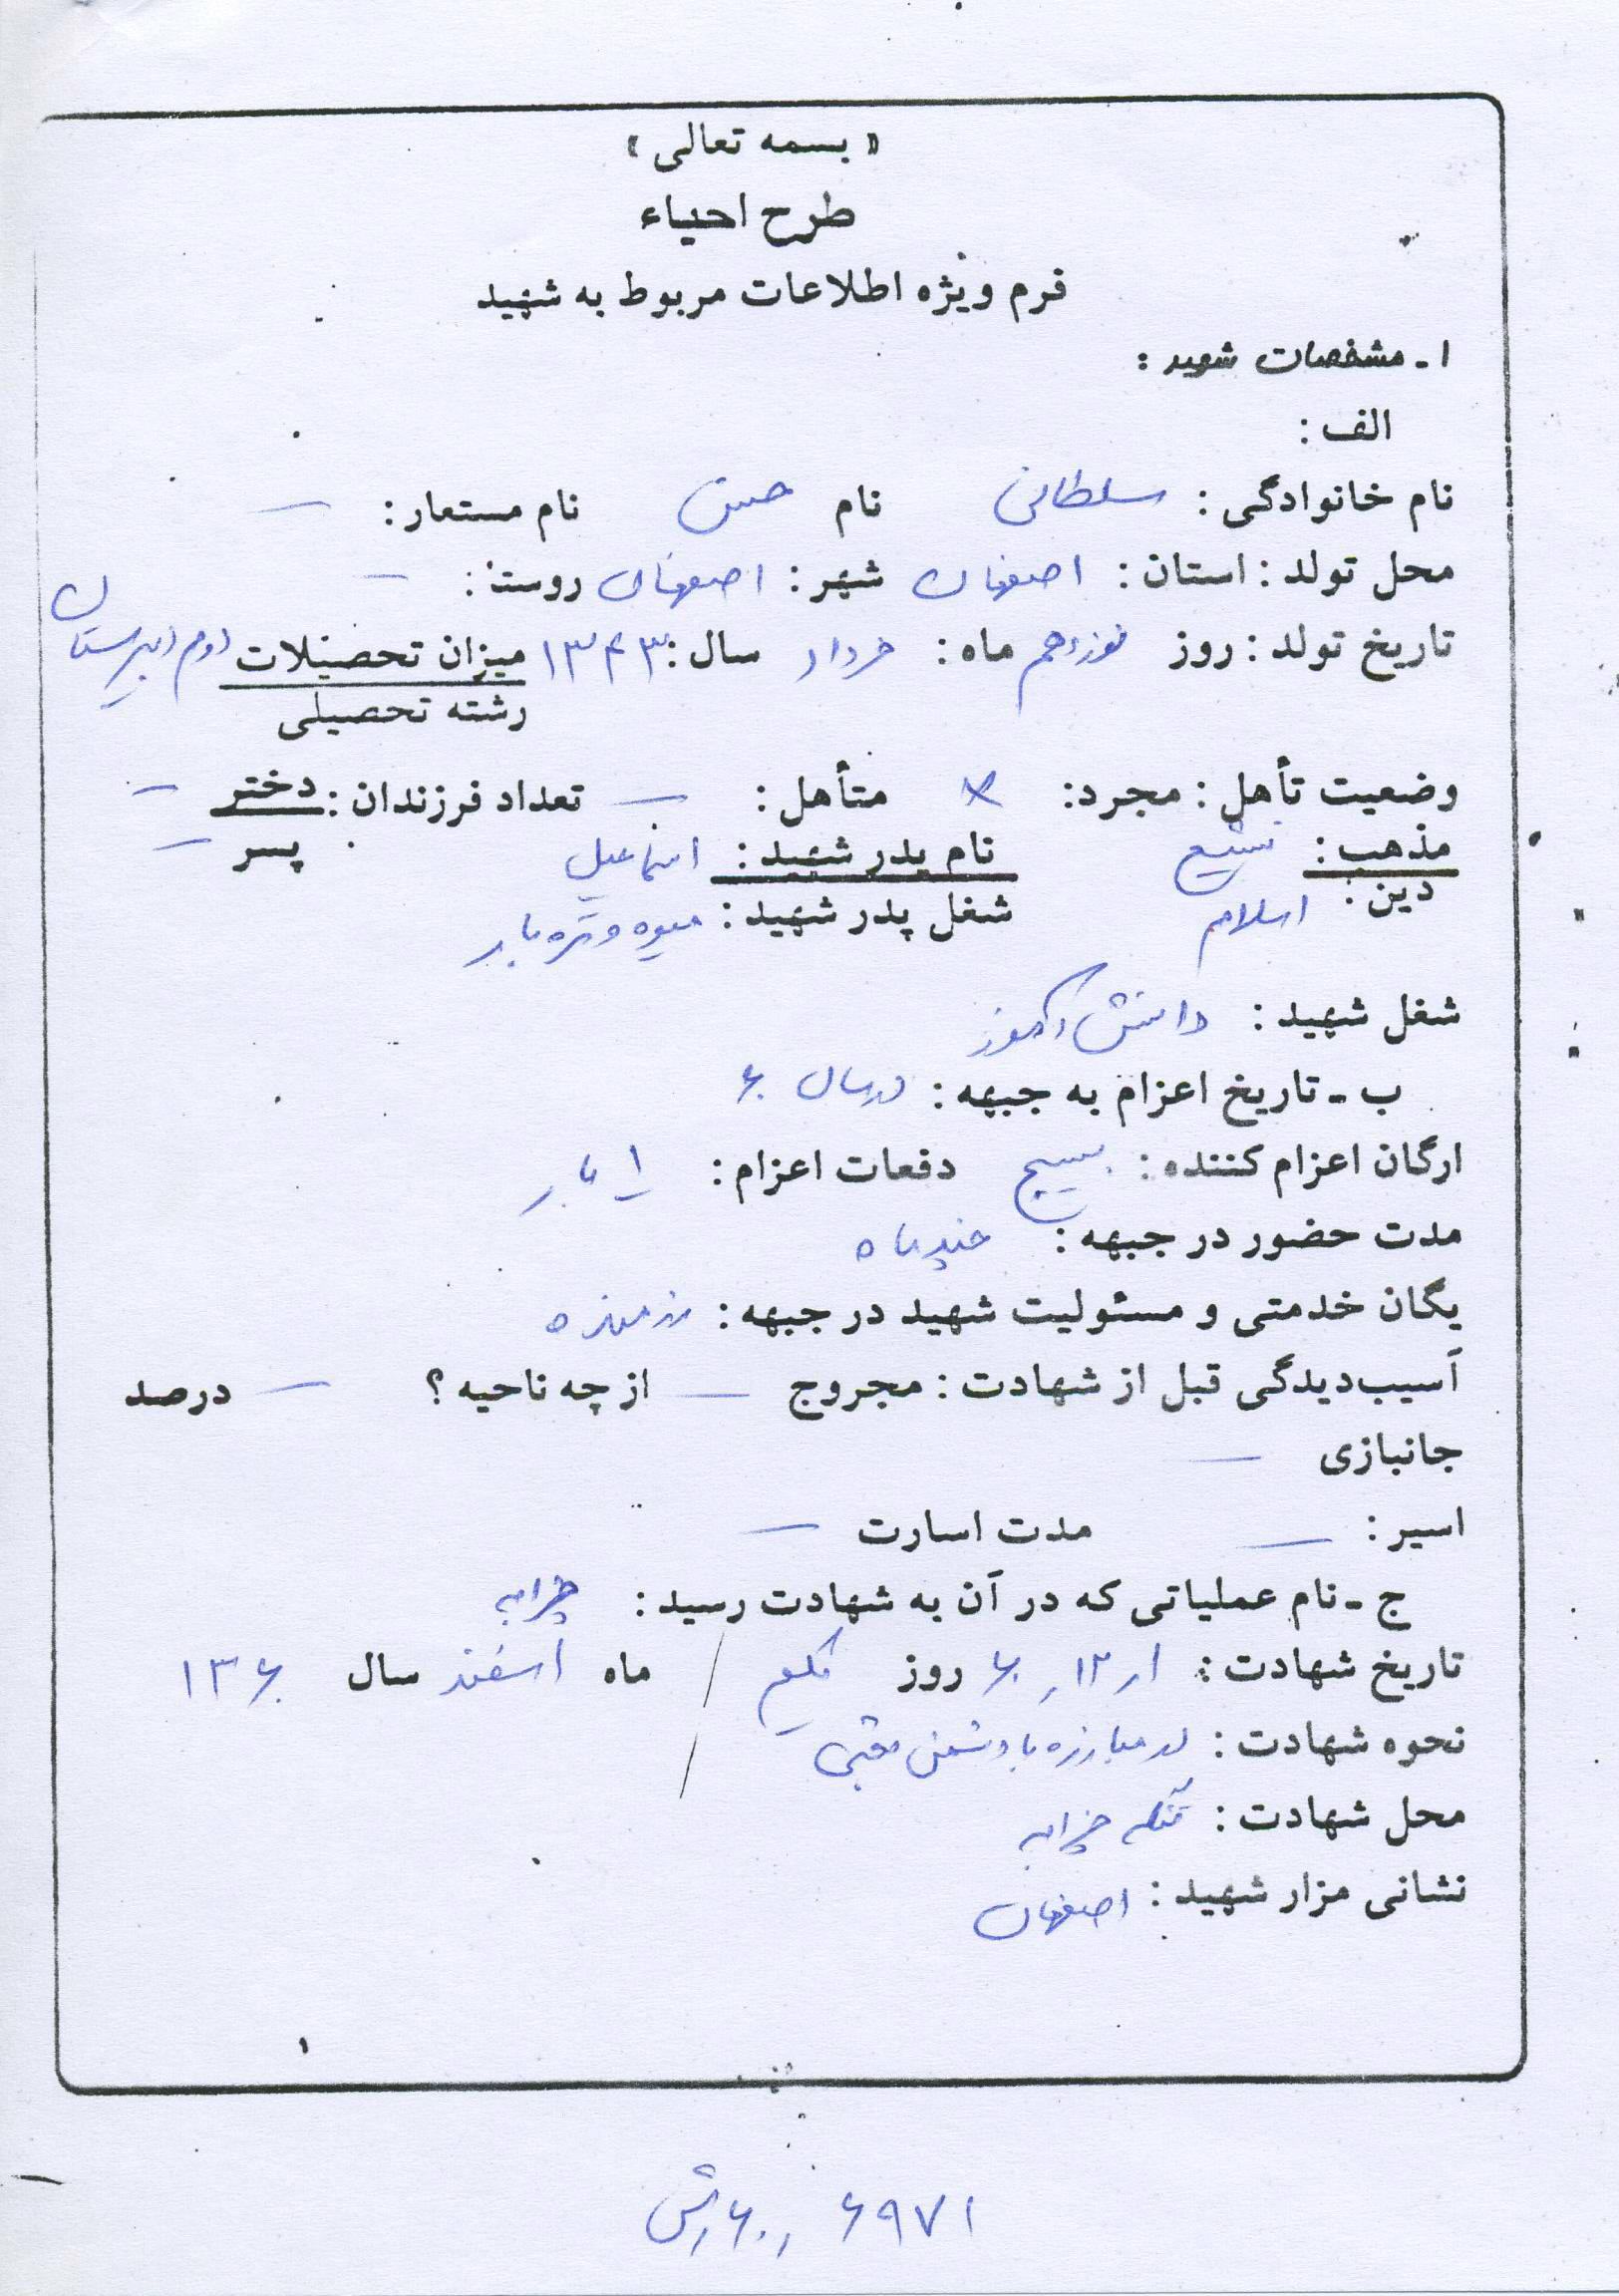 « بسمه تعالی »
طرح احیاء
فرم ویژه اطلاعات مربوط به شهید
۱ - مشخصات شهید :
الف :
نام خانوادگی : سلطانی نام حسن نام مستعار : —
محل تولد : استان : اصفهان شهر : اصفهان روستا : —
تاریخ تولد : روز نوزدهم ماه : خرداد سال : ۱۳۴۳ میزان تحصیلات دوم دبیرستان
رشته تحصیلی
وضعیت تأهل : مجرد : × متأهل : — تعداد فرزندان : دختر —
مذهب : تشیع نام پدر شهید : اسماعیل پسر —
دین : اسلام شغل پدر شهید : میوه و تره بار
شغل شهید : دانش آموز
ب - تاریخ اعزام به جبهه : در سال ۶۰
ارگان اعزام کننده : بسیج دفعات اعزام : ۱ بار
مدت حضور در جبهه : چند ماه
یگان خدمتی و مسئولیت شهید در جبهه : رزمنده
آسیب‌دیدگی قبل از شهادت : مجروح — از چه ناحیه ؟ — درصد
جانبازی —
اسیر : — مدت اسارت —
ج - نام عملیاتی که در آن به شهادت رسید : چزابه
تاریخ شهادت : ۱ر۱۲ر۶۰ روز یکم / ماه اسفند سال ۱۳۶۰
نحوه شهادت : در مبارزه با دشمن بعثی
محل شهادت : تنگه چزابه
نشانی مزار شهید : اصفهان
۱
۶۹۷۱ ر۶۰رش